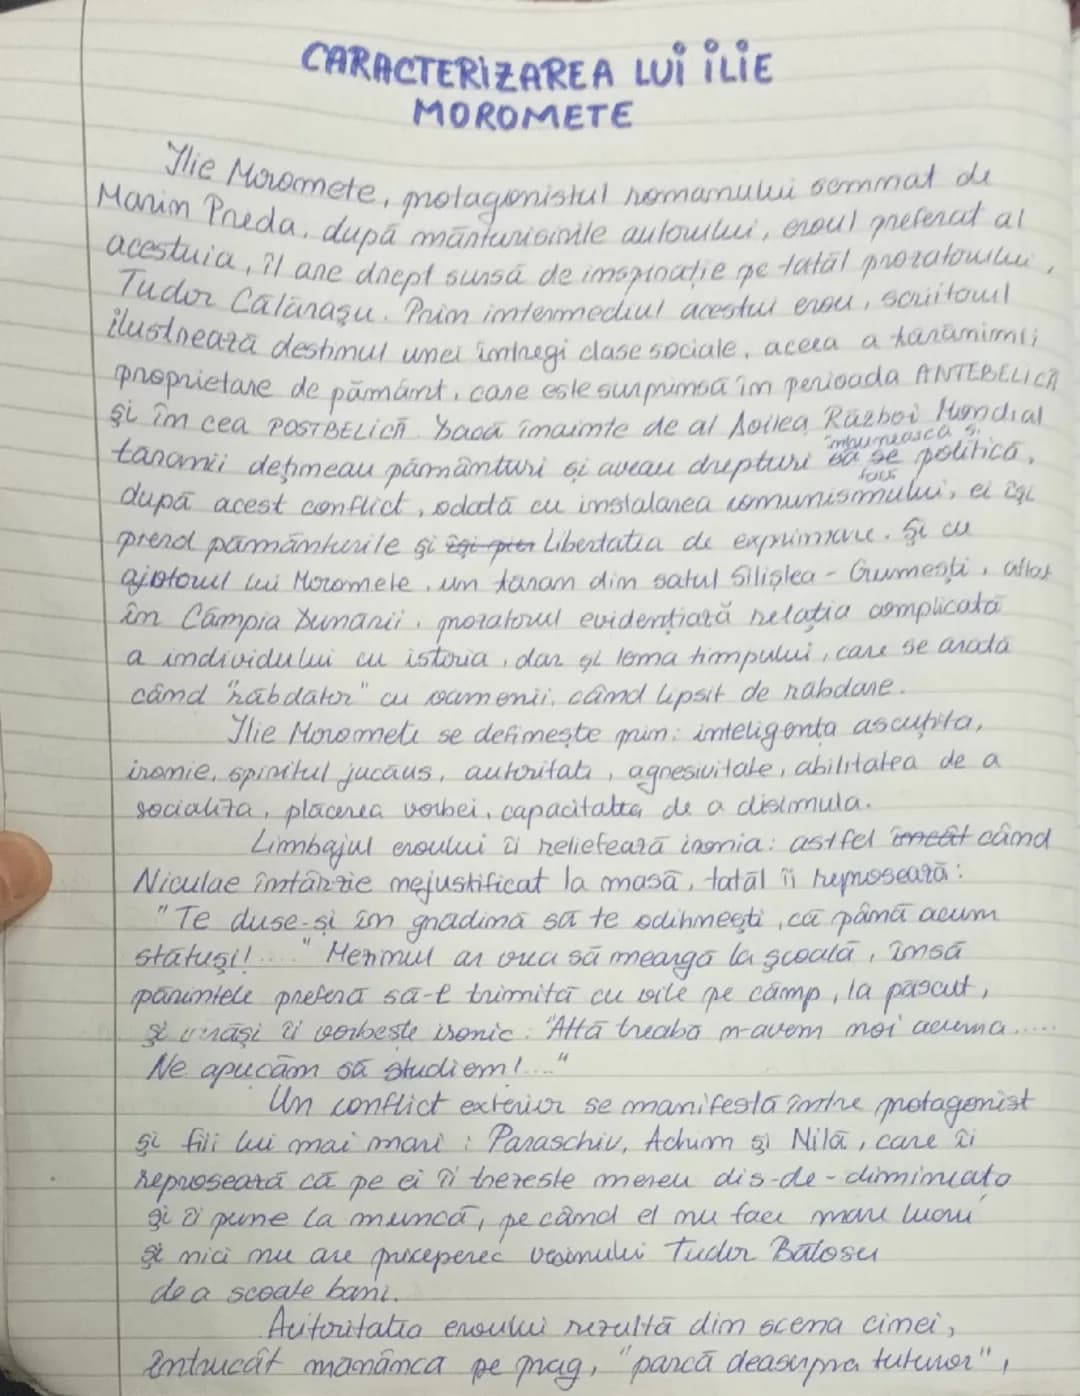 CARACTERIZAREA LUI ILIE
MOROMETE
Ilie Moromete, protagonistul romanului semnat de
Marin Preda, după mărturisirile autorului, eroul preferat al
acestuia, îl are drept sursă de inspirație pe tatăl prozatorului,
Tudor Călărașu. Prin intermediul acestui erou, scriitorul
ilustrează destinul unei întregi clase sociale, aceea a țărănimii
proprietare de pământ, care este surprinsă în perioada ANTEBELICĂ
și în cea POSTBELICĂ. Dacă înainte de al Doilea Război Mondial
țăranii dețineau pământuri și aveau drepturi să se politică,
după acest conflict, odată cu instalarea comunismului, ei își
pierd pământurile și își pier libertatea de exprimare. Și cu
ajutorul lui Moromete, un țăran din satul Siliștea - Gumești, aflat
în Câmpia Dunării, prozatorul evidențiază relația complicată
a individului cu istoria, dar și tema timpului, care se arată
când "răbdător" cu oamenii, când lipsit de răbdare.
Ilie Moromete se definește prin: inteligența ascuțită,
ironie, spiritul jucăuș, autoritate, agresivitate, abilitatea de a
socializa, plăcerea vorbei, capacitatea de a disimula.
Limbajul eroului îi reliefează ironia: astfel încât când
Niculae întârzie nejustificat la masă, tatăl îi reproșează:
"Te duse-și în grădină să te odihnești, că până acum
stătuși!...." Mezinul ar vrea să meargă la școală, însă
părintele preferă să-l trimită cu oile pe câmp, la păscut,
și iarăși îi vorbește ironic: "Altă treabă n-avem noi acuma.....
Ne apucăm să studiem!...."
Un conflict exterior se manifestă între protagonist
și fiii lui mai mari: Paraschiv, Achim și Nilă, care îi
reproșează că pe ei îi trezește mereu dis-de-dimineață
și îi pune la muncă, pe când el nu face mare lucru
și nici nu are priceperea vecinului Tudor Bălosu
de a scoate bani.
Autoritatea eroului rezultă din scena cinei,
întrucât mănâncă pe prag, "parcă deasupra tuturor",